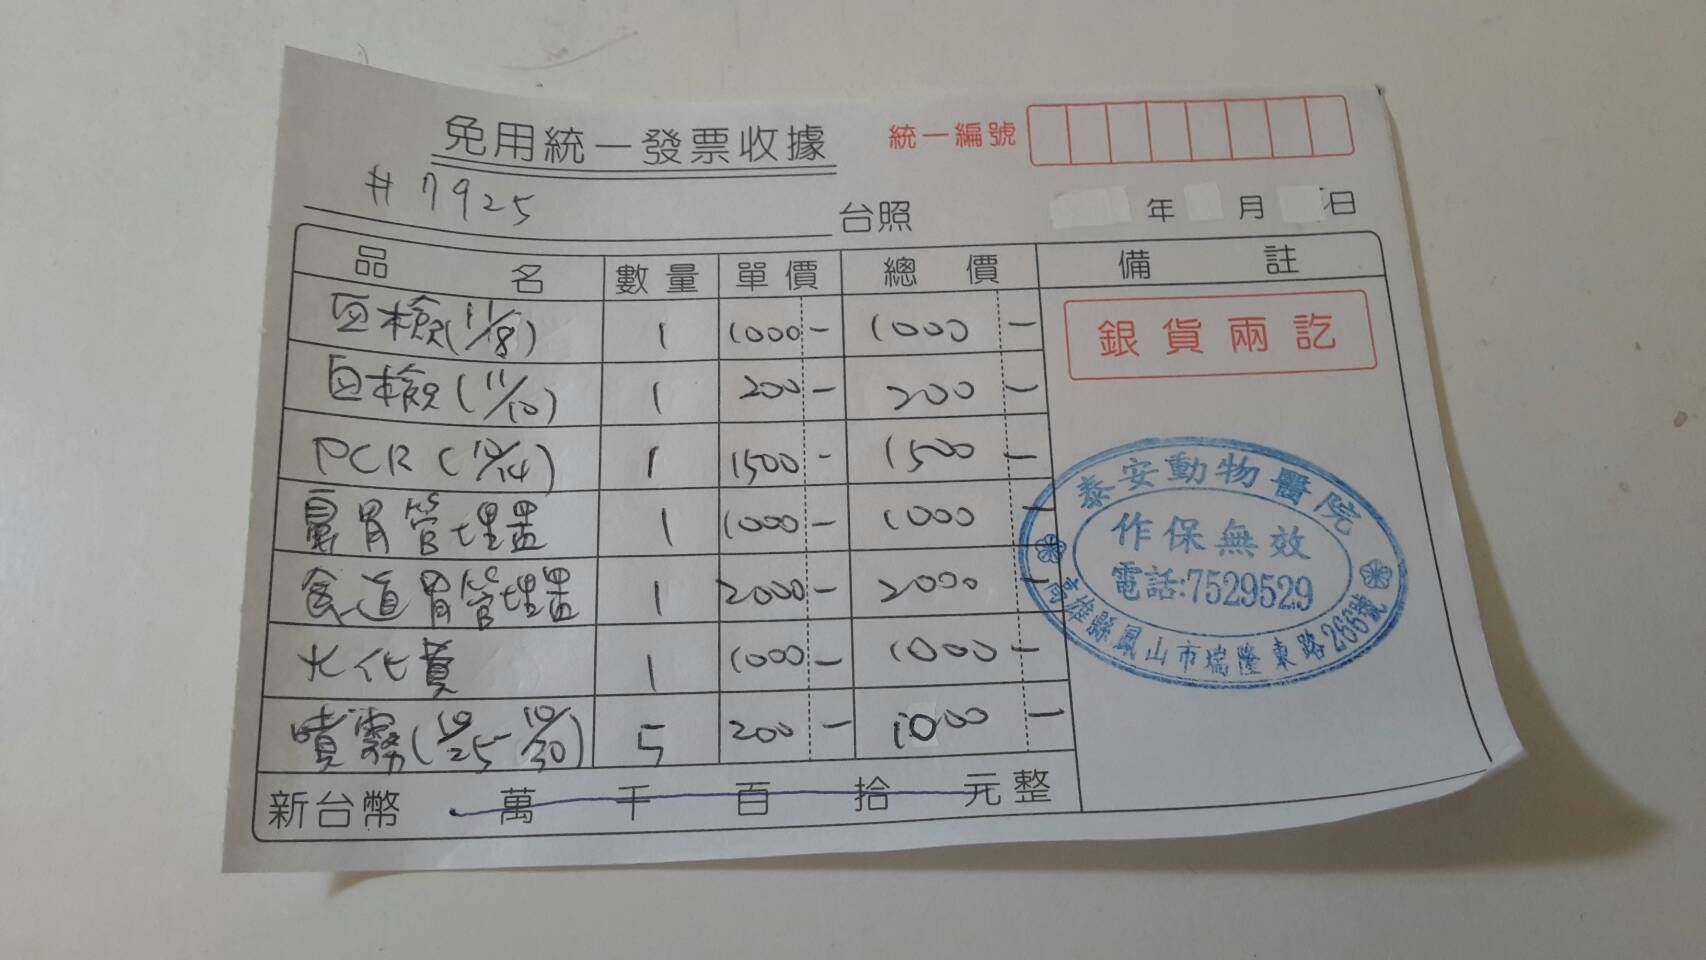 免用統一發票收據
統一編號
#7925 台照
年 月 日
品名 數量 單價 總價 備註
血檢(11/8) 1 1000- 1000-
血檢(11/10) 1 200- 200-
PCR(10/14) 1 1500- 1500-
鼻胃管埋置 1 1000- 1000-
食道胃管埋置 1 2000- 2000-
火化費 1 1000- 1000-
噴霧(10/25-10/30) 5 200- 1000-
新台幣 萬 千 百 拾 元整
銀貨兩訖
泰安動物醫院
作保無效
電話:7529529
高雄縣鳳山市瑞隆東路266號